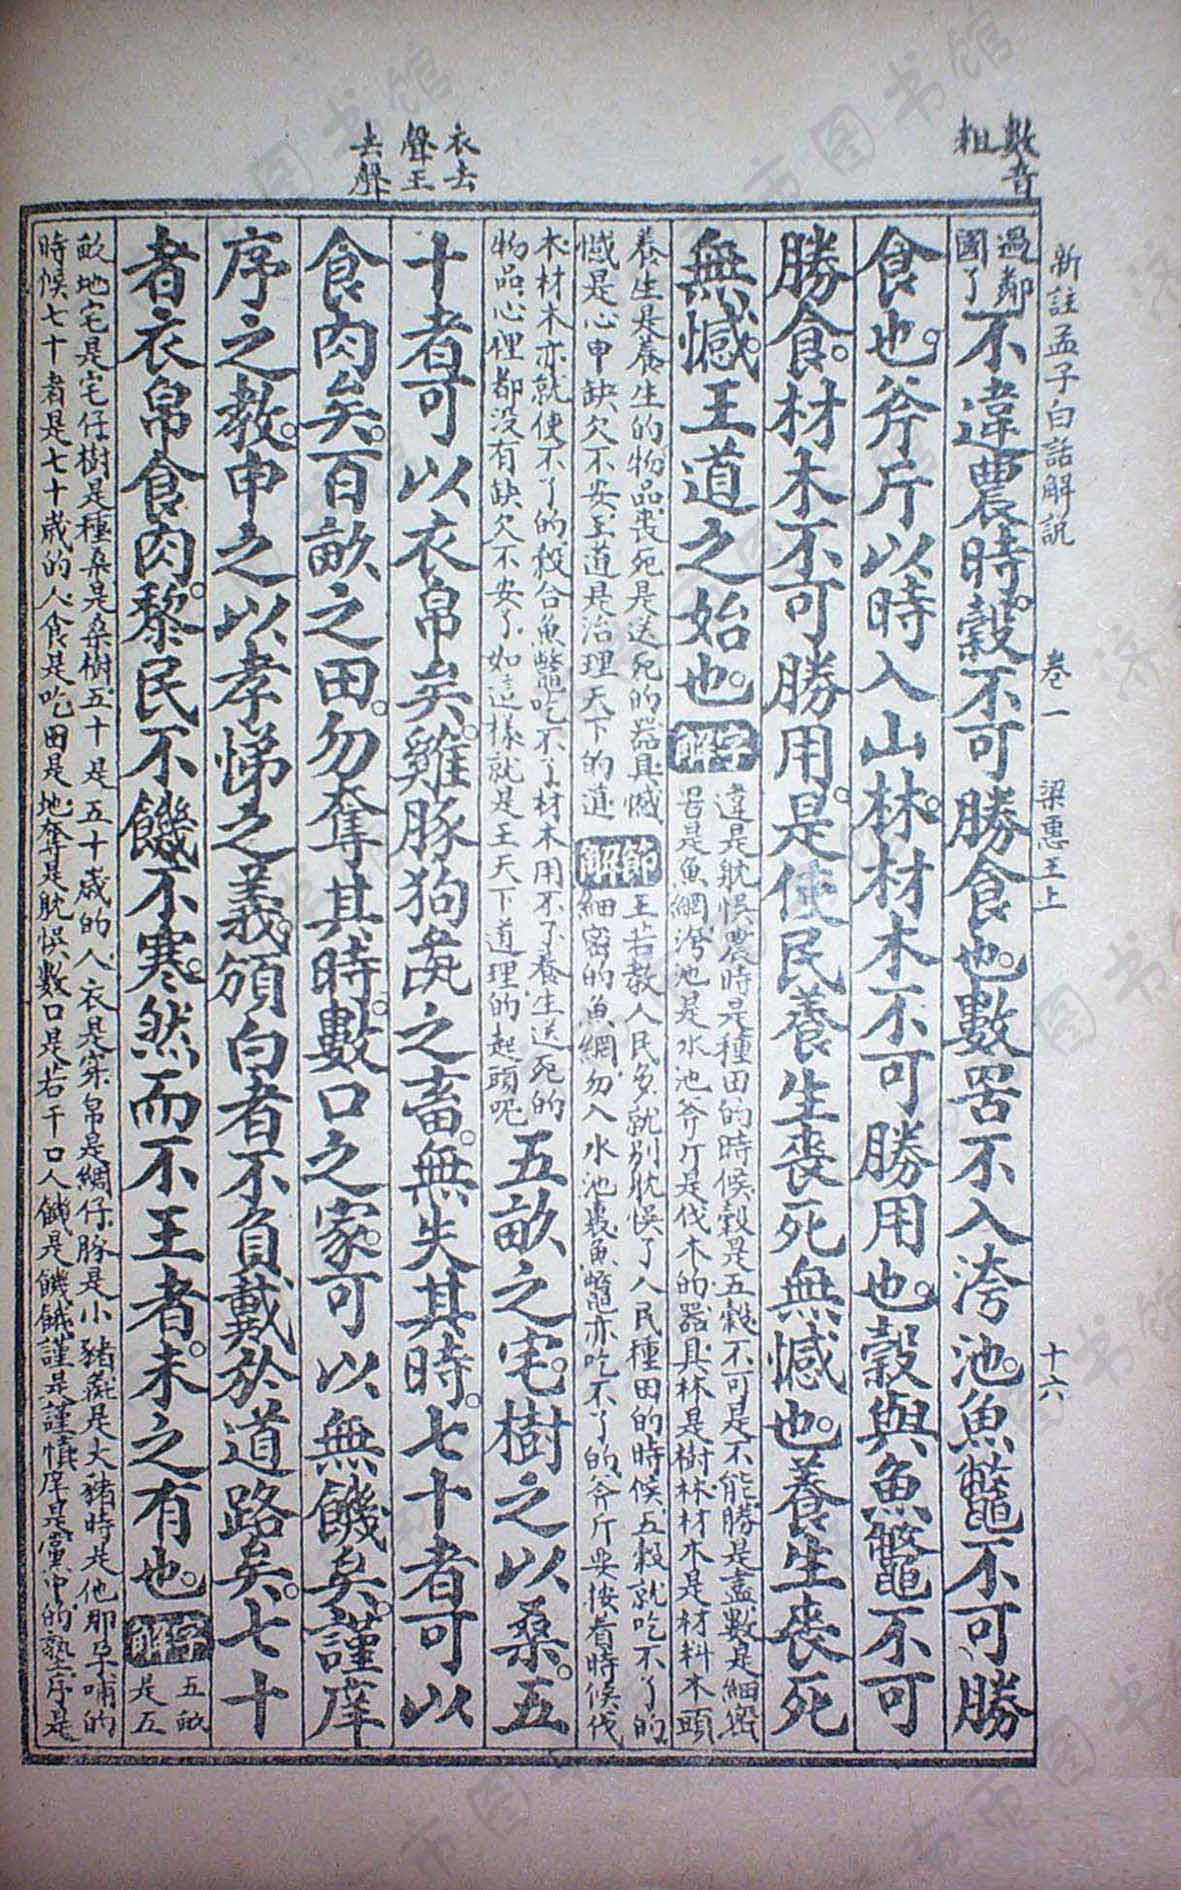 數音
粗
衣去
聲王
去聲
新註孟子白話解説 卷一 梁惠王上 十六
過鄰
國了
不違農時。穀不可勝食也。數罟不入洿池。魚鼈不可勝
食也。斧斤以時入山林。材木不可勝用也。穀與魚鼈不可
勝食。材木不可勝用。是使民養生喪死無憾也。養生喪死
無憾。王道之始也。
字解
違是躭悞農時是種田的時候穀是五穀不可是不能勝是盡數是細密
罟是魚網洿池是水池斧斤是伐木的器具林是樹林材木是材料木頭
養生是養生的物品喪死是送死的器具憾
憾是心中缺欠不安王道是治理天下的道
節解
王若教人民多就别躭悞了人民種田的時候五穀就吃不了的
細密的魚網勿入水池裏魚鼈亦吃不了的斧斤要按着時候伐
木材木亦就使不了的穀合魚鼈吃不了材木用不了養生送死的
物品心裡都没有缺欠不安了如這樣就是王天下道理的起頭呢
五畝之宅。樹之以桑。五
十者可以衣帛矣。雞豚狗彘之畜。無失其時。七十者可以
食肉矣。百畝之田。勿奪其時。數口之家。可以無饑矣。謹庠
序之教。申之以孝悌之義。頒白者不負戴於道路矣。七十
者衣帛食肉。黎民不饑不寒。然而不王者。未之有也。
字解
五畝
是五
畝地宅是宅仔樹是種桑是桑樹五十是五十歲的人衣是穿帛是綢仔豚是小豬彘是大豬時是他那孕哺的
時候七十者是七十歲的人食是吃田是地奪是躭悞數口是若干口人饑是饑餓謹是謹慎庠是黨中的塾序是